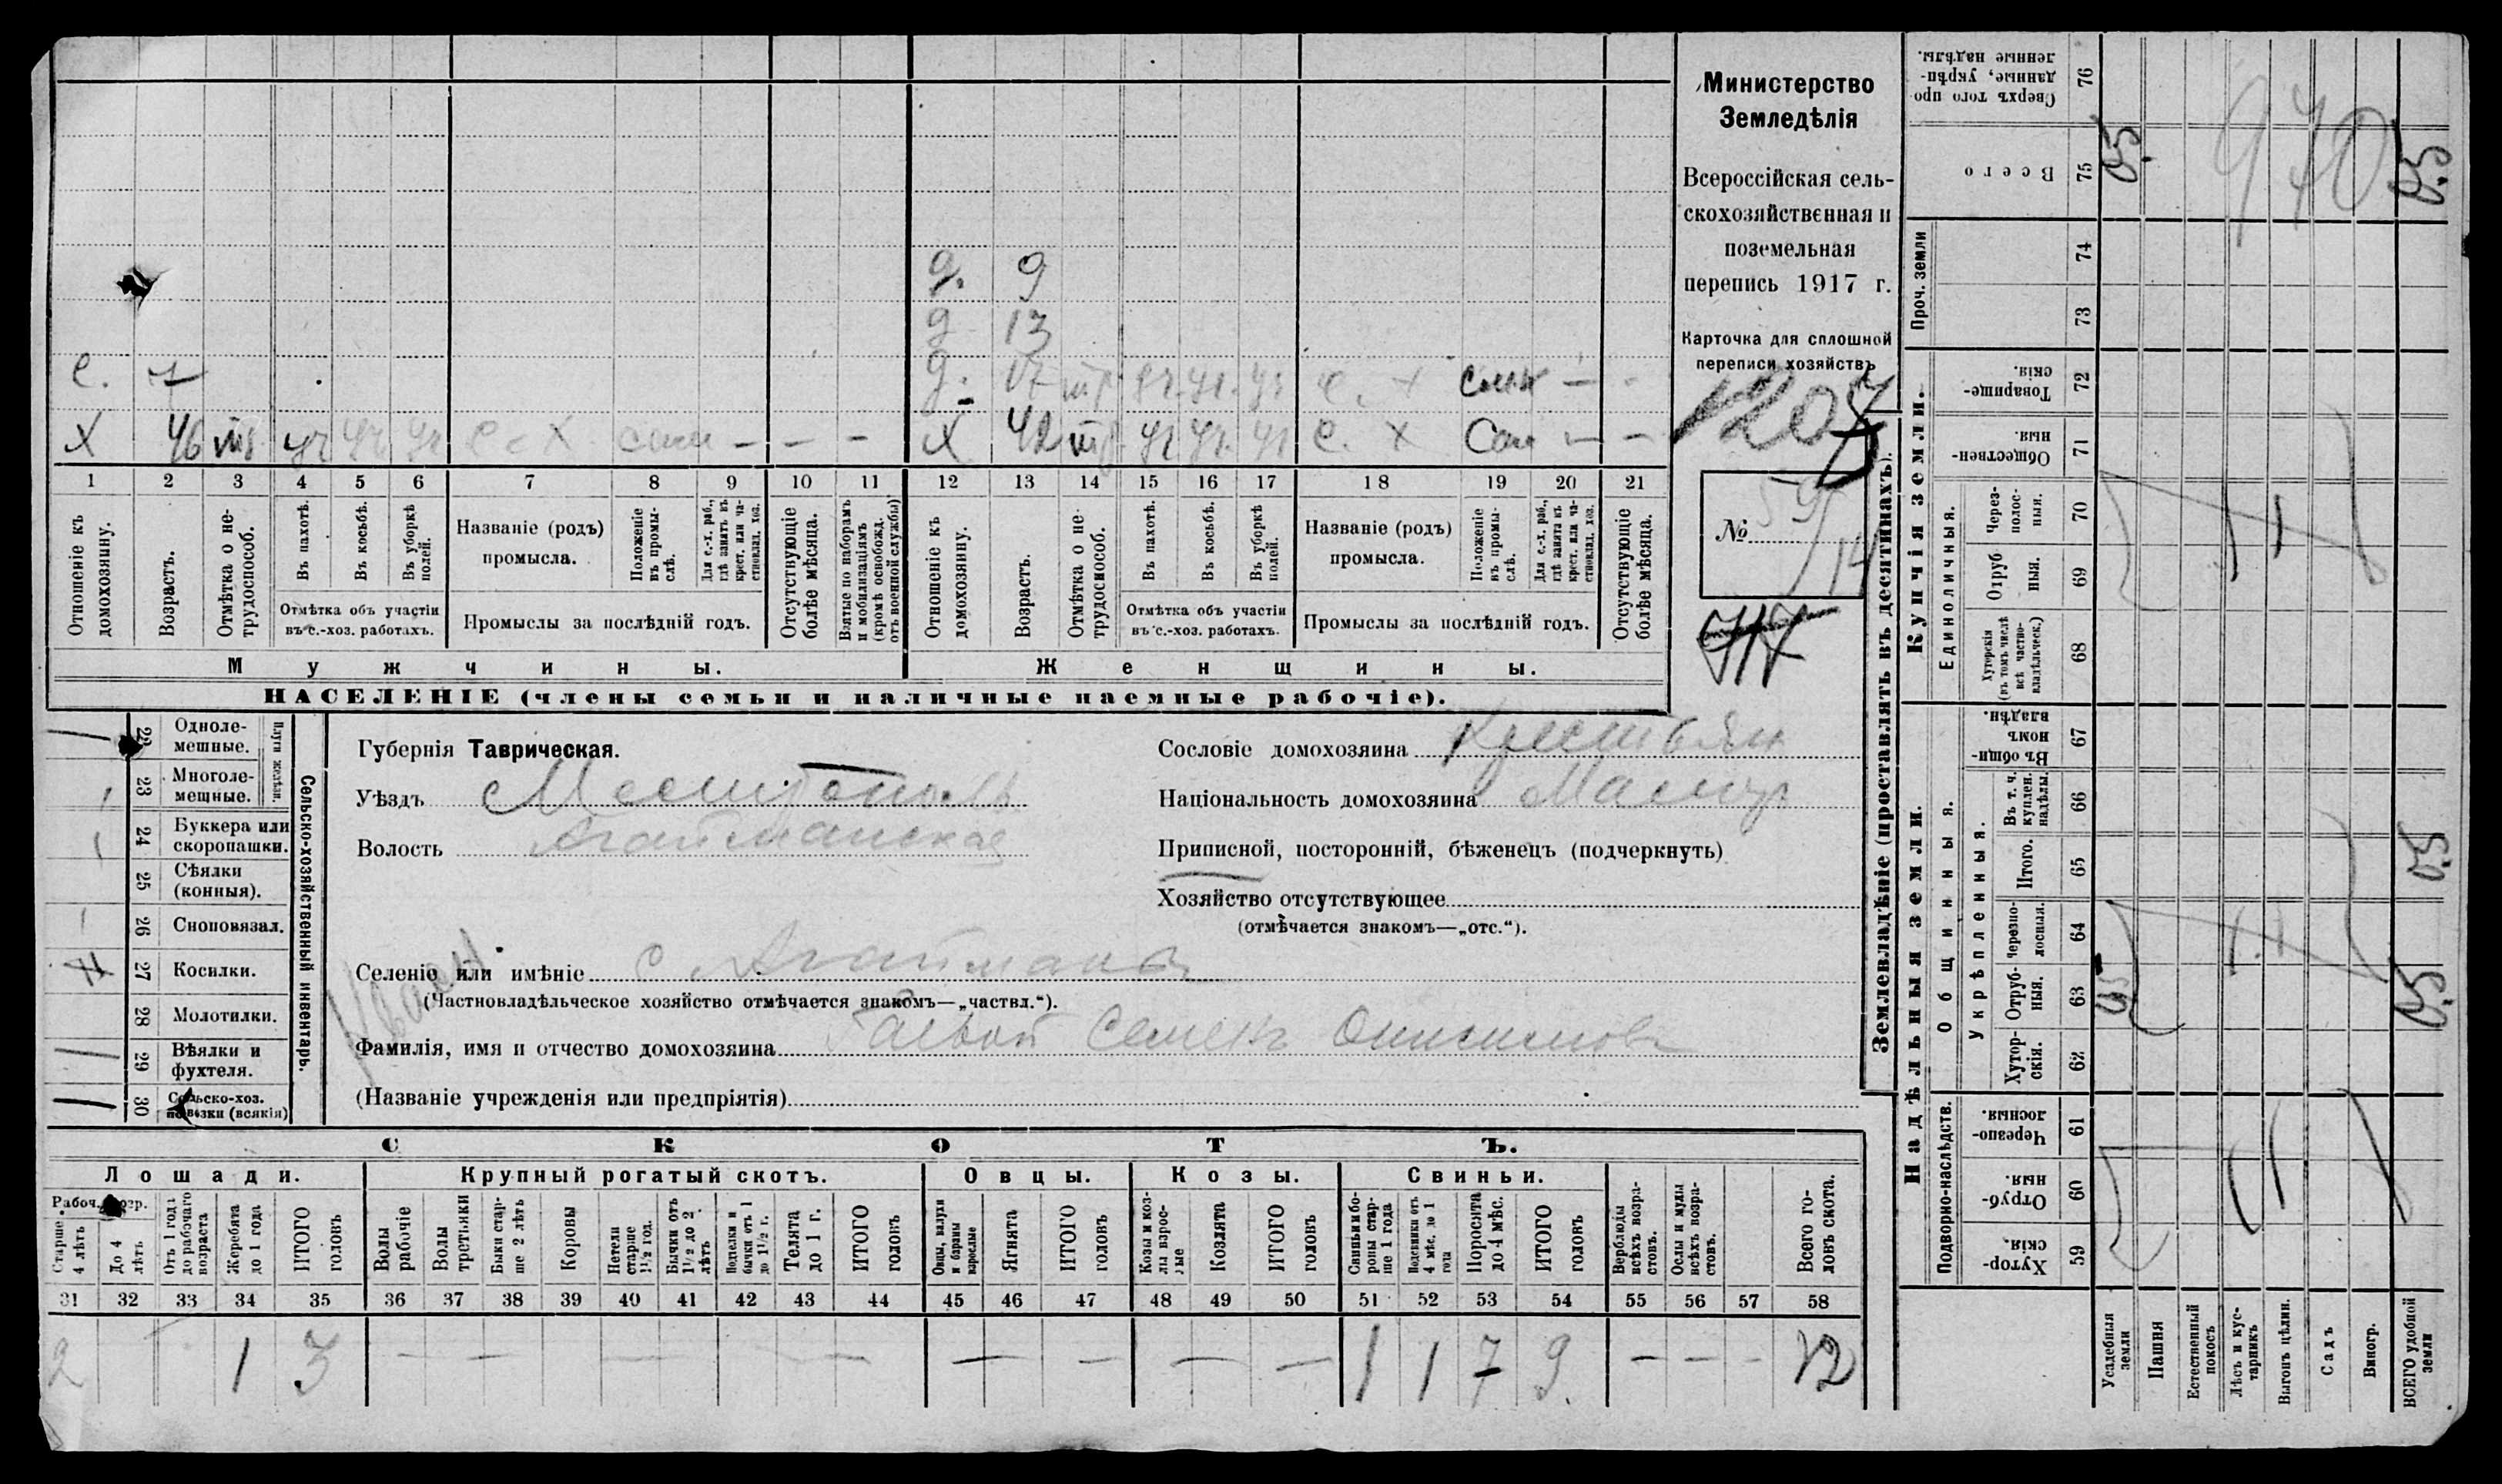 Министерство
Земледѣлія
Всероссійская сель-
скохозяйственная и
поземельная
перепись 1917 г.
Карточка для сплошной
переписи хозяйствъ
№
д. 9
д 13
с. 7
д. 17 тр.
Х 46 тр. с х
Х 42 тр. с. х
1 2 3 4 5 6 7 8 9 10 11 12 13 14 15 16 17 18 19 20 21
Отношеніе къ домохозяину.
Возрастъ.
Отмѣтка о не-трудоспособ.
Въ пахотѣ.
Въ косьбѣ.
Въ уборкѣ полей.
Отмѣтка объ участіи
въ с.-хоз. работахъ.
Названіе (родъ)
промысла.
Положеніе въ промы-слѣ.
Для с.-х. раб., гдѣ занятъ въ крест. или ча-стновлад. хоз.
Промыслы за послѣдній годъ.
Отсутствующіе болѣе мѣсяца.
Взятые по наборамъ и мобилизаціямъ (кромѣ освобожд. отъ военной службы)
Отношеніе къ домохозяину.
Возрастъ.
Отмѣтка о не-трудоспособ.
Въ пахотѣ.
Въ косьбѣ.
Въ уборкѣ полей.
Отмѣтка объ участіи
въ с.-хоз. работахъ.
Названіе (родъ)
промысла.
Положеніе въ промы-слѣ.
Для с.-х. раб., гдѣ занятъ въ крест. или ча-стновлад. хоз.
Промыслы за послѣдній годъ.
Отсутствующіе болѣе мѣсяца.
Мужчины.
Женщины.
НАСЕЛЕНІЕ (члены семьи и наличные наемные рабочіе).
Сельско-хозяйственный инвентарь.
Плуги желѣзн.
22 Одноле-мешные.
23 Многоле-мешные.
24 Буккера или скоропашки.
25 Сѣялки (конныя).
26 Сноповязал.
27 Косилки.
28 Молотилки.
29 Вѣялки и фухтеля.
30 Сельско-хоз. повозки (всякія)
Губернія Таврическая.
Уѣздъ Мелитополь
Волость Агайманская
Сословіе домохозяина Крестьян
Національность домохозяина Малор
Приписной, посторонній, бѣженецъ (подчеркнуть)
Хозяйство отсутствующее
(отмѣчается знакомъ—„отс.“).
Селеніе или имѣніе с Агайманы
(Частновладѣльческое хозяйство отмѣчается знакомъ—„частвл.“).
Фамилія, имя и отчество домохозяина Гаевой Семенъ Онисимовъ
(Названіе учрежденія или предпріятія)
СКОТЪ.
Лошади.
Крупный рогатый скотъ.
Овцы.
Козы.
Свиньи.
Старше 4 лѣтъ
До 4 лѣтъ
Отъ 1 года до рабочаго возраста
Жеребята до 1 года
ИТОГО головъ
Волы рабочіе
Волы третьяки
Быки стар-ше 2 лѣтъ
Коровы
Нетели старше 1½ год.
Бычки отъ 1½ до 2 лѣтъ
Подтелки и бычки отъ 1 до 1½ г.
Телята до 1 г.
ИТОГО головъ
Овцы, валухи и бараны взрослые
Ягнята
ИТОГО головъ
Козы и коз-лы взрос-лые
Козлята
ИТОГО головъ
Свиньи и бо-ровы стар-ше 1 года
Подсвинки отъ 4 мѣс. до 1 года
Поросята до 4 мѣс.
ИТОГО головъ
Верблюды всѣхъ возра-стовъ.
Ослы и мулы всѣхъ возра-стовъ.
Всего го-ловъ скота.
31 32 33 34 35 36 37 38 39 40 41 42 43 44 45 46 47 48 49 50 51 52 53 54 55 56 57 58
2 1 3 — — — — — — — — — — 1 1 7 9. — — - 12
Землевладѣніе (проставлять въ десятинахъ).
Купчія земли.
Надѣльныя земли.
Сверхъ того про-данные, укрѣп-ленные надѣлы. 76
Всего 75
Проч. земли 74 73
Товарище-скія. 72
Обществен-ныя. 71
Единоличныя.
Через-полос-ныя. 70
Отруб-ныя. 69
Хуторскія (въ томъ числѣ всѣ частно-владѣльческ.) 68
Въ общин-номъ владѣн. 67
Общинныя.
Укрѣпленныя.
Въ т. ч. куплен. надѣлы. 66
Итого. 65
Черезпо-лосныя. 64
Отруб-ныя. 63
Хутор-скія. 62
Подворно-наслѣдств.
Черезпо-лосныя. 61
Отруб-ныя. 60
Хутор-скія. 59
Усадебныя земли
Пашня
Естественный покосъ
Лѣсъ и кус-тарникъ
Выгонъ цѣлин.
Садъ
Виногр.
ВСЕГО удобной земли
970
0,5
0,5
0,5
0,5
0,5